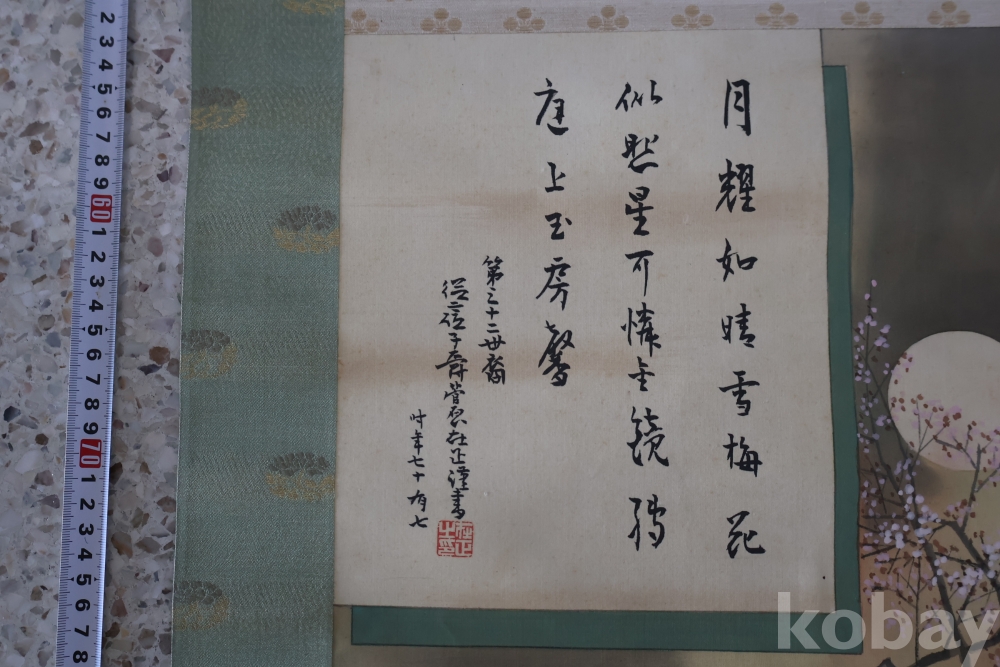 月耀如晴雪梅花
似照星可憐金鏡轉
庭上玉房馨
第三十二世裔
從二位子爵菅原在正謹書
时年七十有七
在正之印
2 3 4 5 6 7 8 9 60 1 2 3 4 5 6 7 8 9 70 1 2 3 4 5 6 7 8
kobay